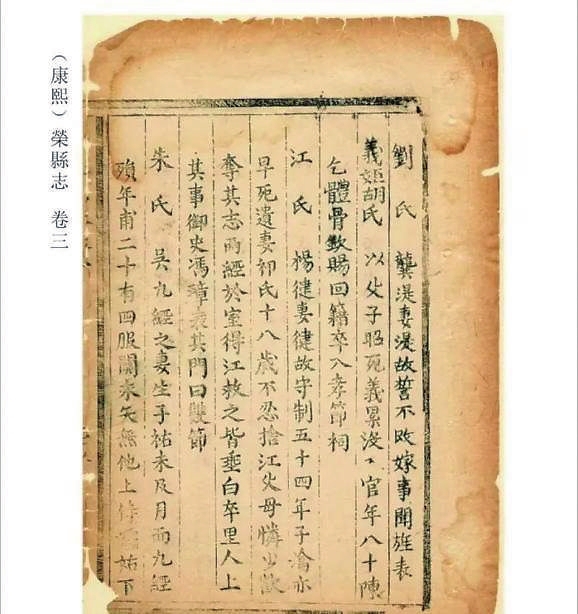 劉氏 龔湜妻湜故誓不改嫁事聞旌表
義姬胡氏 以父子昭死義累沒、官年八十陳
乞體骨欽賜回籍卒入孝節祠
江氏 楊健妻健故守制五十四年子瀹亦
早死遺妻郭氏十八歲不忍捨江父母憐少欲
奪其志兩經於室得江救之皆垂白卒里人上
其事御史馮璋表其門曰雙節
朱氏 吳九經之妻生子祐未及月而九經
殞年甫二十有四服闋矢無他上侍姑下
（康熙）榮縣志 卷三